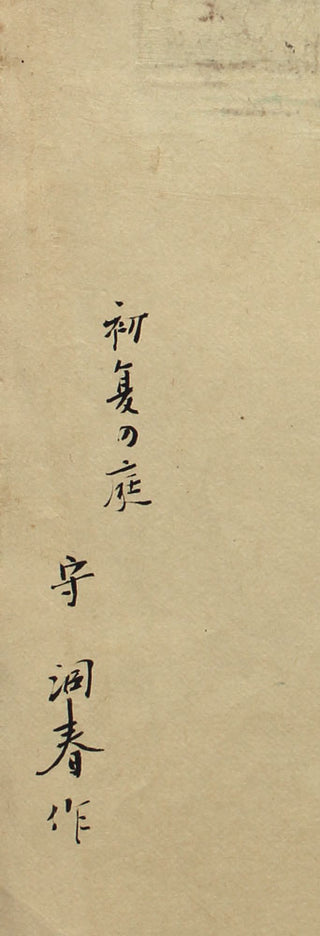 初夏の庭
守 洞春作